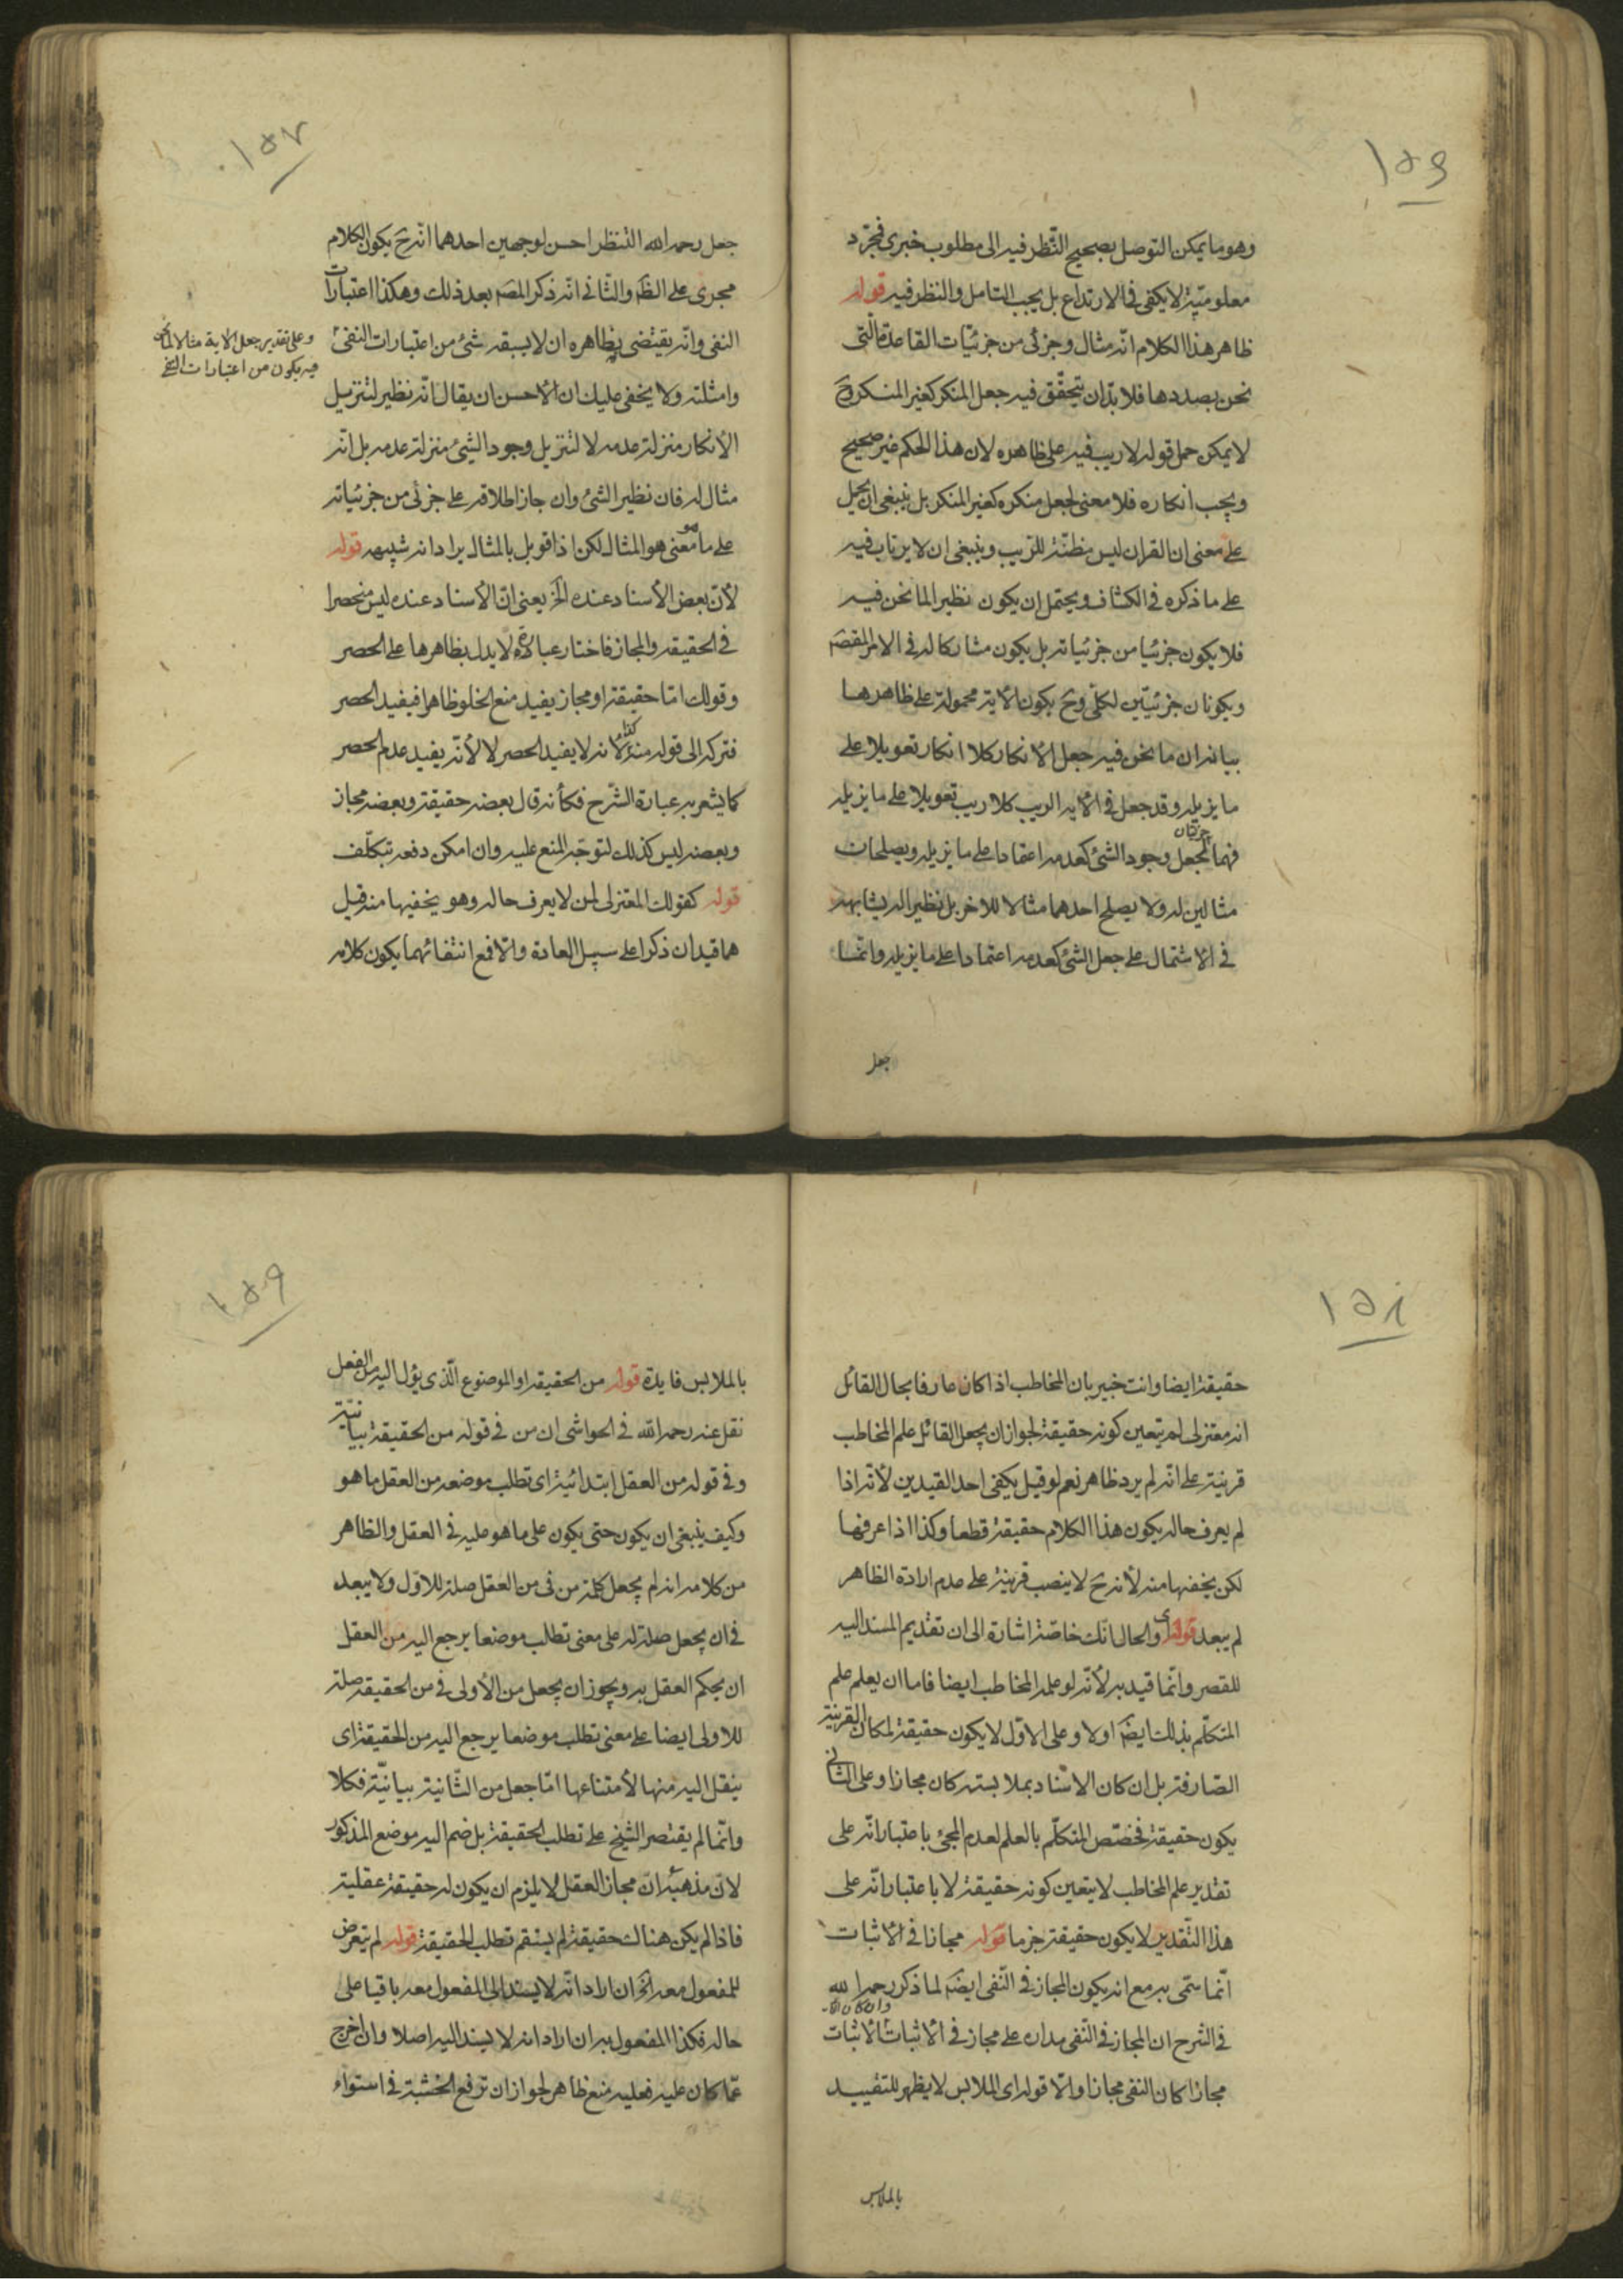 ١٥٦
وهو ما يمكن التوصل بصحيح النّظر فيه الى مطلوب خبري فمجرّد
معلوميّته لا يكفى في الارتداع بل يجب التامل والنظر فيه قوله
ظاهر هذا الكلام انّه مثال وجزئى من جزئيّات القاعدة الّتى
نحن بصددها فلا بدّ ان يتحقّق فيه جعل المنكر كغير المنكر وح
لا يمكن حمل قوله لا ريب فيه على ظاهره لان هذا الحكم غير صحيح
ويجب انكاره فلا معنى لجعل منكره كغير المنكر بل ينبغى ان يحمل
على معنى ان القران ليس مظنّة للرّيب وينبغى ان لا يرتاب فيه
على ما ذكره في الكشاف ويحتمل ان يكون نظيرا لما نحن فيه
فلا يكون جزئيا من جزئياته بل يكون مشاركا له في الامر المقصَه
ويكونان جزئيّين لكلّى وح يكون الاية محمولة على ظاهرها
بيانه ان ما نحن فيه جعل الانكار كلا انكار تعويلا على
ما يزيله وقد جعل في الاية الريب كلا ريب تعويلا على ما يزيله
جزئيان
فهما لجعل وجود الشئ كعدمه اعتمادا على ما يزيله ويصلحان
مثالين له ولا يصلح احدهما مثالا للاخر بل نظيرا له يشابهه
في الاشتمال على جعل الشئ كعدمه اعتمادا على ما يزيله وانّما
جعل
١٥٧
جعل رحمه الله التنظر احسن لوجهين احدهما انّه ح يكون الكلام
مجرى على الظَه والثانى انّه ذكر المصَه بعد ذلك وهكذا اعتبارات
النفى وانّه يقتضى بظاهره ان لا يسبقه شئ من اعتبارات النفى
وعلى تقدير جعل الاية مثالا لما نحن
فيه يكون من اعتبارات النفى
وامثلته ولا يخفى عليك ان الاحسن ان يقال انّه نظير لتنزيل
الانكار منزلة عدمه لا لتنزيل وجود الشئ منزلة عدمه بل انّه
مثال له فان نظير الشئ وان جاز اطلاقه على جزئى من جزئياته
على ما هو معنى هو المثال لكن اذا قوبل بالمثال يراد انه شبيهه قوله
لانّ بعض الاسناد عنده الخ يعنى انّ الاسناد عنده ليس منحصرا
في الحقيقة والمجاز فاختار عبارة لا يدل بظاهرها على الحصر
وقولك امّا حقيقة او مجاز يفيد منع الخلو ظاهرا فيفيد الحصر
فتركه الى قوله منه كذا لانه لا يفيد الحصر لا لانّه يفيد عدم الحصر
كما يشعر به عبارة الشّرح فكأنه قال بعضه حقيقة وبعضه مجاز
وبعضه ليس كذلك لتوجّه المنع عليه وان امكن دفعه بتكلّف
قوله كقولك المعتزلى لمن لا يعرف حاله وهو يخفيها منه قيل
هما قيدان ذكرا على سبيل العادة والّا فمع انتفائهما يكون كلامه
١٥٨
حقيقة ايضا وانت خبير بان المخاطب اذا كان عارفا بحال القائل
انه معتزلى لم يتعين كونه حقيقة لجواز ان يجعل القائل علم المخاطب
قرينة على انّه لم يرد ظاهره نعم لو قيل يكفى احد القيدين لانّه اذا
لم يعرف حاله يكون هذا الكلام حقيقة قطعا وكذا اذا عرفها
لكن يخفيها منه لانه ح لا ينصب قرينة على عدم ارادة الظاهر
لم يبعد قوله اى والحال انّك خاصّة اشارة الى ان تقديم المسند اليه
للقصر وانّما قيد به لانّه لو علمه المخاطب ايضا فاما ان يعلم علم
المتكلّم بذلك ايضَه او لا وعلى الاوّل لا يكون حقيقة لمكان القرينة
الصّارفة بل ان كان الاسناد بملابسته كان مجازا وعلى الثانى
يكون حقيقة فخصّص المتكلّم بالعلم لعدم المجئ باعتبار انّه على
تقدير علم المخاطب لا يتعين كونه حقيقة لا باعتبار انّه على
هذا التّقدير لا يكون حقيقة جزما قوله مجازا في الاثبات
انّما سمّى به مع انه يكون المجاز في النّفى ايضَه لما ذكر رحمه الله
في الشرح ان المجاز في النّفى مداره على مجاز في الاثبات الاثبات
مجازا كان النفى مجازا والّا قوله اى الملابس لا يظهر للتقييد
بالملابس
١٥٩
بالملابس فايدة قوله من الحقيقة او الموضوع الّذى يؤل اليه من الفعل
نقل عنه رحمه الله في الحواشى ان من في قوله من الحقيقة بيانيّة
وفي قوله من العقل ابتدائية اى تطلب موضعه من العقل ما هو
وكيف ينبغى ان يكون حتى يكون على ما هو عليه في العقل والظاهر
من كلامه انه لم يجعل كلمة من في من العقل صلة للاوّل ولا يبعد
في ان يجعل صلة له على معنى تطلب موضعا يرجع اليه من العقل
ان يحكم العقل به ويجوز ان يجعل من الأولى في من الحقيقة صلة
للاولى ايضا على معنى تطلب موضعا يرجع اليه من الحقيقة اى
ينقل اليه منها لامتناعها امّا جعل من الثّانية بيانيّة فكلا
وانّما لم يقتصر الشيخ على تطلب الحقيقة بل ضم اليه موضع المذكور
لانّ مذهبه انّ مجاز العقل لا يلزم ان يكون له حقيقة عقلية
فاذا لم يكن هناك حقيقة لم يستقم تطلب الحقيقة قوله لم يتعرض
للمفعول معه الخ ان اراد انّه لا يسند الى المفعول معه باقيا على
حاله فكذا المفعول به ان اراد انه لا يسند اليه اصلا وان اخرج
عمّا كان عليه فعليه منع ظاهر لجواز ان ترفع الخشبة في استواء